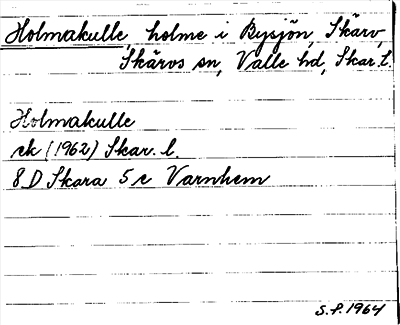 Holmakulle, holme i Bysjön, Skärv,
Skärvs sn, Valle hd, Skar. l.
Holmakulle
ek (1962) Skar. l.
8 D Skara 5 e Varnhem
S.P. 1964